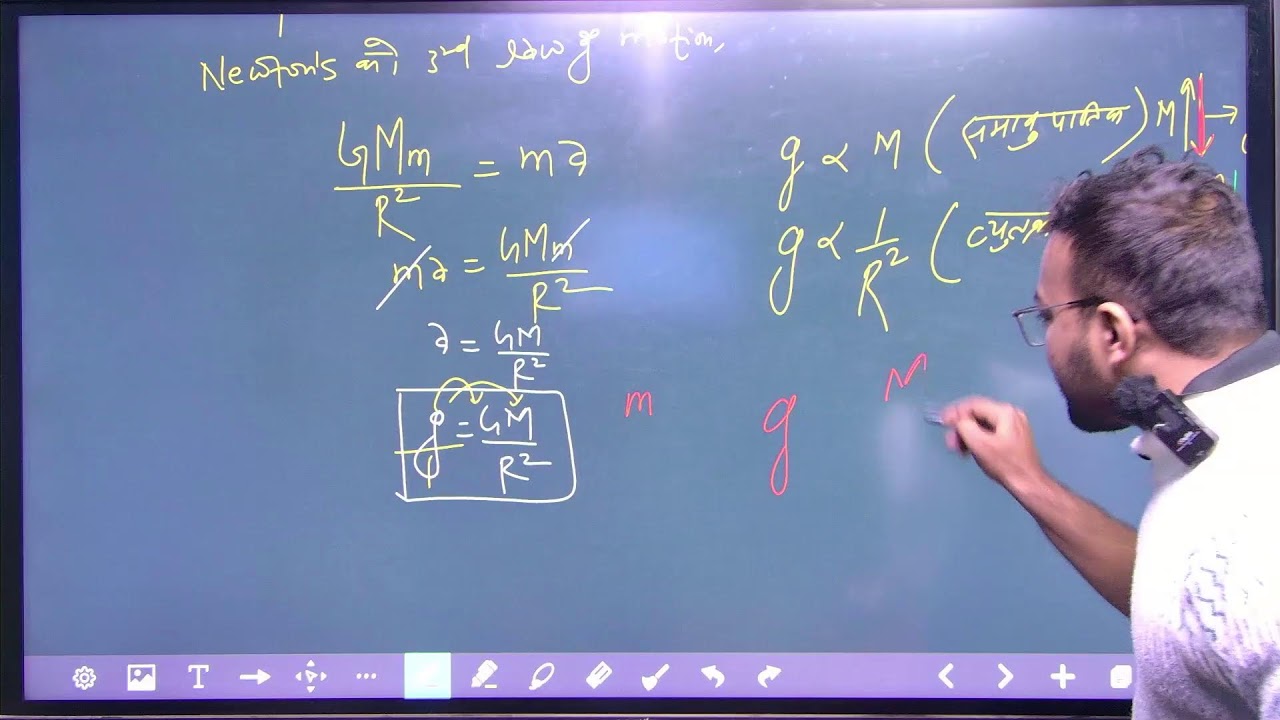 Newton's की 3rd law of motion,
GMm/R² = ma
ma = GMm/R²
a = GM/R²
g = GM/R²
g ∝ M (समानुपातिक) M↑
g ∝ 1/R² (
m
g
M
T